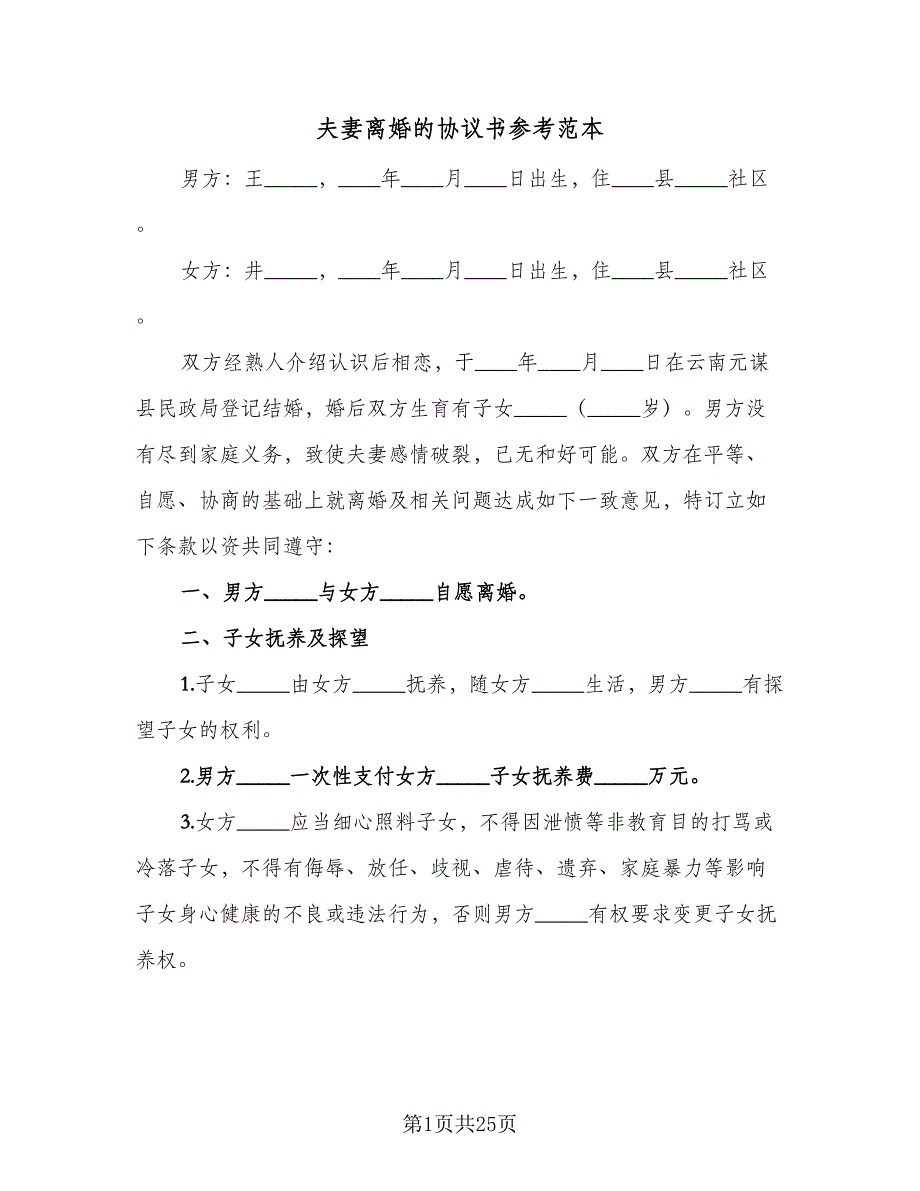 夫妻离婚的协议书参考范本
男方：王_____，____年____月____日出生，住____县_____社区
。
女方：井_____，____年____月____日出生，住____县_____社区
。
双方经熟人介绍认识后相恋，于____年____月____日在云南元谋
县民政局登记结婚，婚后双方生育有子女_____（_____岁）。男方没
有尽到家庭义务，致使夫妻感情破裂，已无和好可能。双方在平等、
自愿、协商的基础上就离婚及相关问题达成如下一致意见，特订立如
下条款以资共同遵守：
一、男方_____与女方_____自愿离婚。
二、子女抚养及探望
1.子女_____由女方_____抚养，随女方_____生活，男方_____有探
望子女的权利。
2.男方_____一次性支付女方_____子女抚养费_____万元。
3.女方_____应当细心照料子女，不得因泄愤等非教育目的打骂或
冷落子女，不得有侮辱、放任、歧视、虐待、遗弃、家庭暴力等影响
子女身心健康的不良或违法行为，否则男方_____有权要求变更子女抚
养权。
第1页共25页